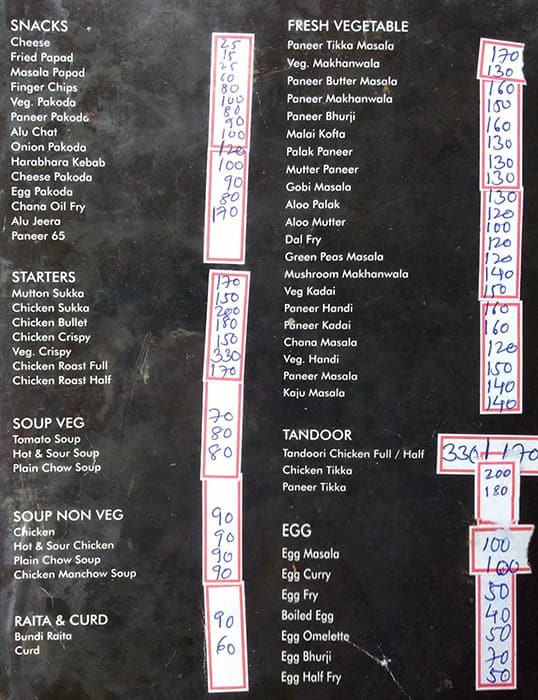 SNACKS
Cheese 25
Fried Papad 15
Masala Papad 25
Finger Chips 60
Veg. Pakoda 80
Paneer Pakoda 100
Alu Chat 80
Onion Pakoda 90
Harabhara Kebab 100
Cheese Pakoda 120
Egg Pakoda 100
Chana Oil Fry 90
Alu Jeera 80
Paneer 65 170
STARTERS
Mutton Sukka 170
Chicken Sukka 150
Chicken Bullet 200
Chicken Crispy 180
Veg. Crispy 150
Chicken Roast Full 330
Chicken Roast Half 170
SOUP VEG
Tomato Soup 70
Hot & Sour Soup 80
Plain Chow Soup 80
SOUP NON VEG
Chicken 90
Hot & Sour Chicken 90
Plain Chow Soup 90
Chicken Manchow Soup 90
RAITA & CURD
Bundi Raita 90
Curd 60
FRESH VEGETABLE
Paneer Tikka Masala 170
Veg. Makhanwala 130
Paneer Butter Masala 160
Paneer Makhanwala 150
Paneer Bhurji 160
Malai Kofta 130
Palak Paneer 130
Mutter Paneer 130
Gobi Masala 130
Aloo Palak 120
Aloo Mutter 100
Dal Fry 120
Green Peas Masala 120
Mushroom Makhanwala 140
Veg Kadai 150
Paneer Handi 160
Paneer Kadai 160
Chana Masala 120
Veg. Handi 150
Paneer Masala 140
Kaju Masala 140
TANDOOR
Tandoori Chicken Full / Half 330/170
Chicken Tikka 200
Paneer Tikka 180
EGG
Egg Masala 100
Egg Curry 100
Egg Fry 50
Boiled Egg 40
Egg Omelette 50
Egg Bhurji 70
Egg Half Fry 50